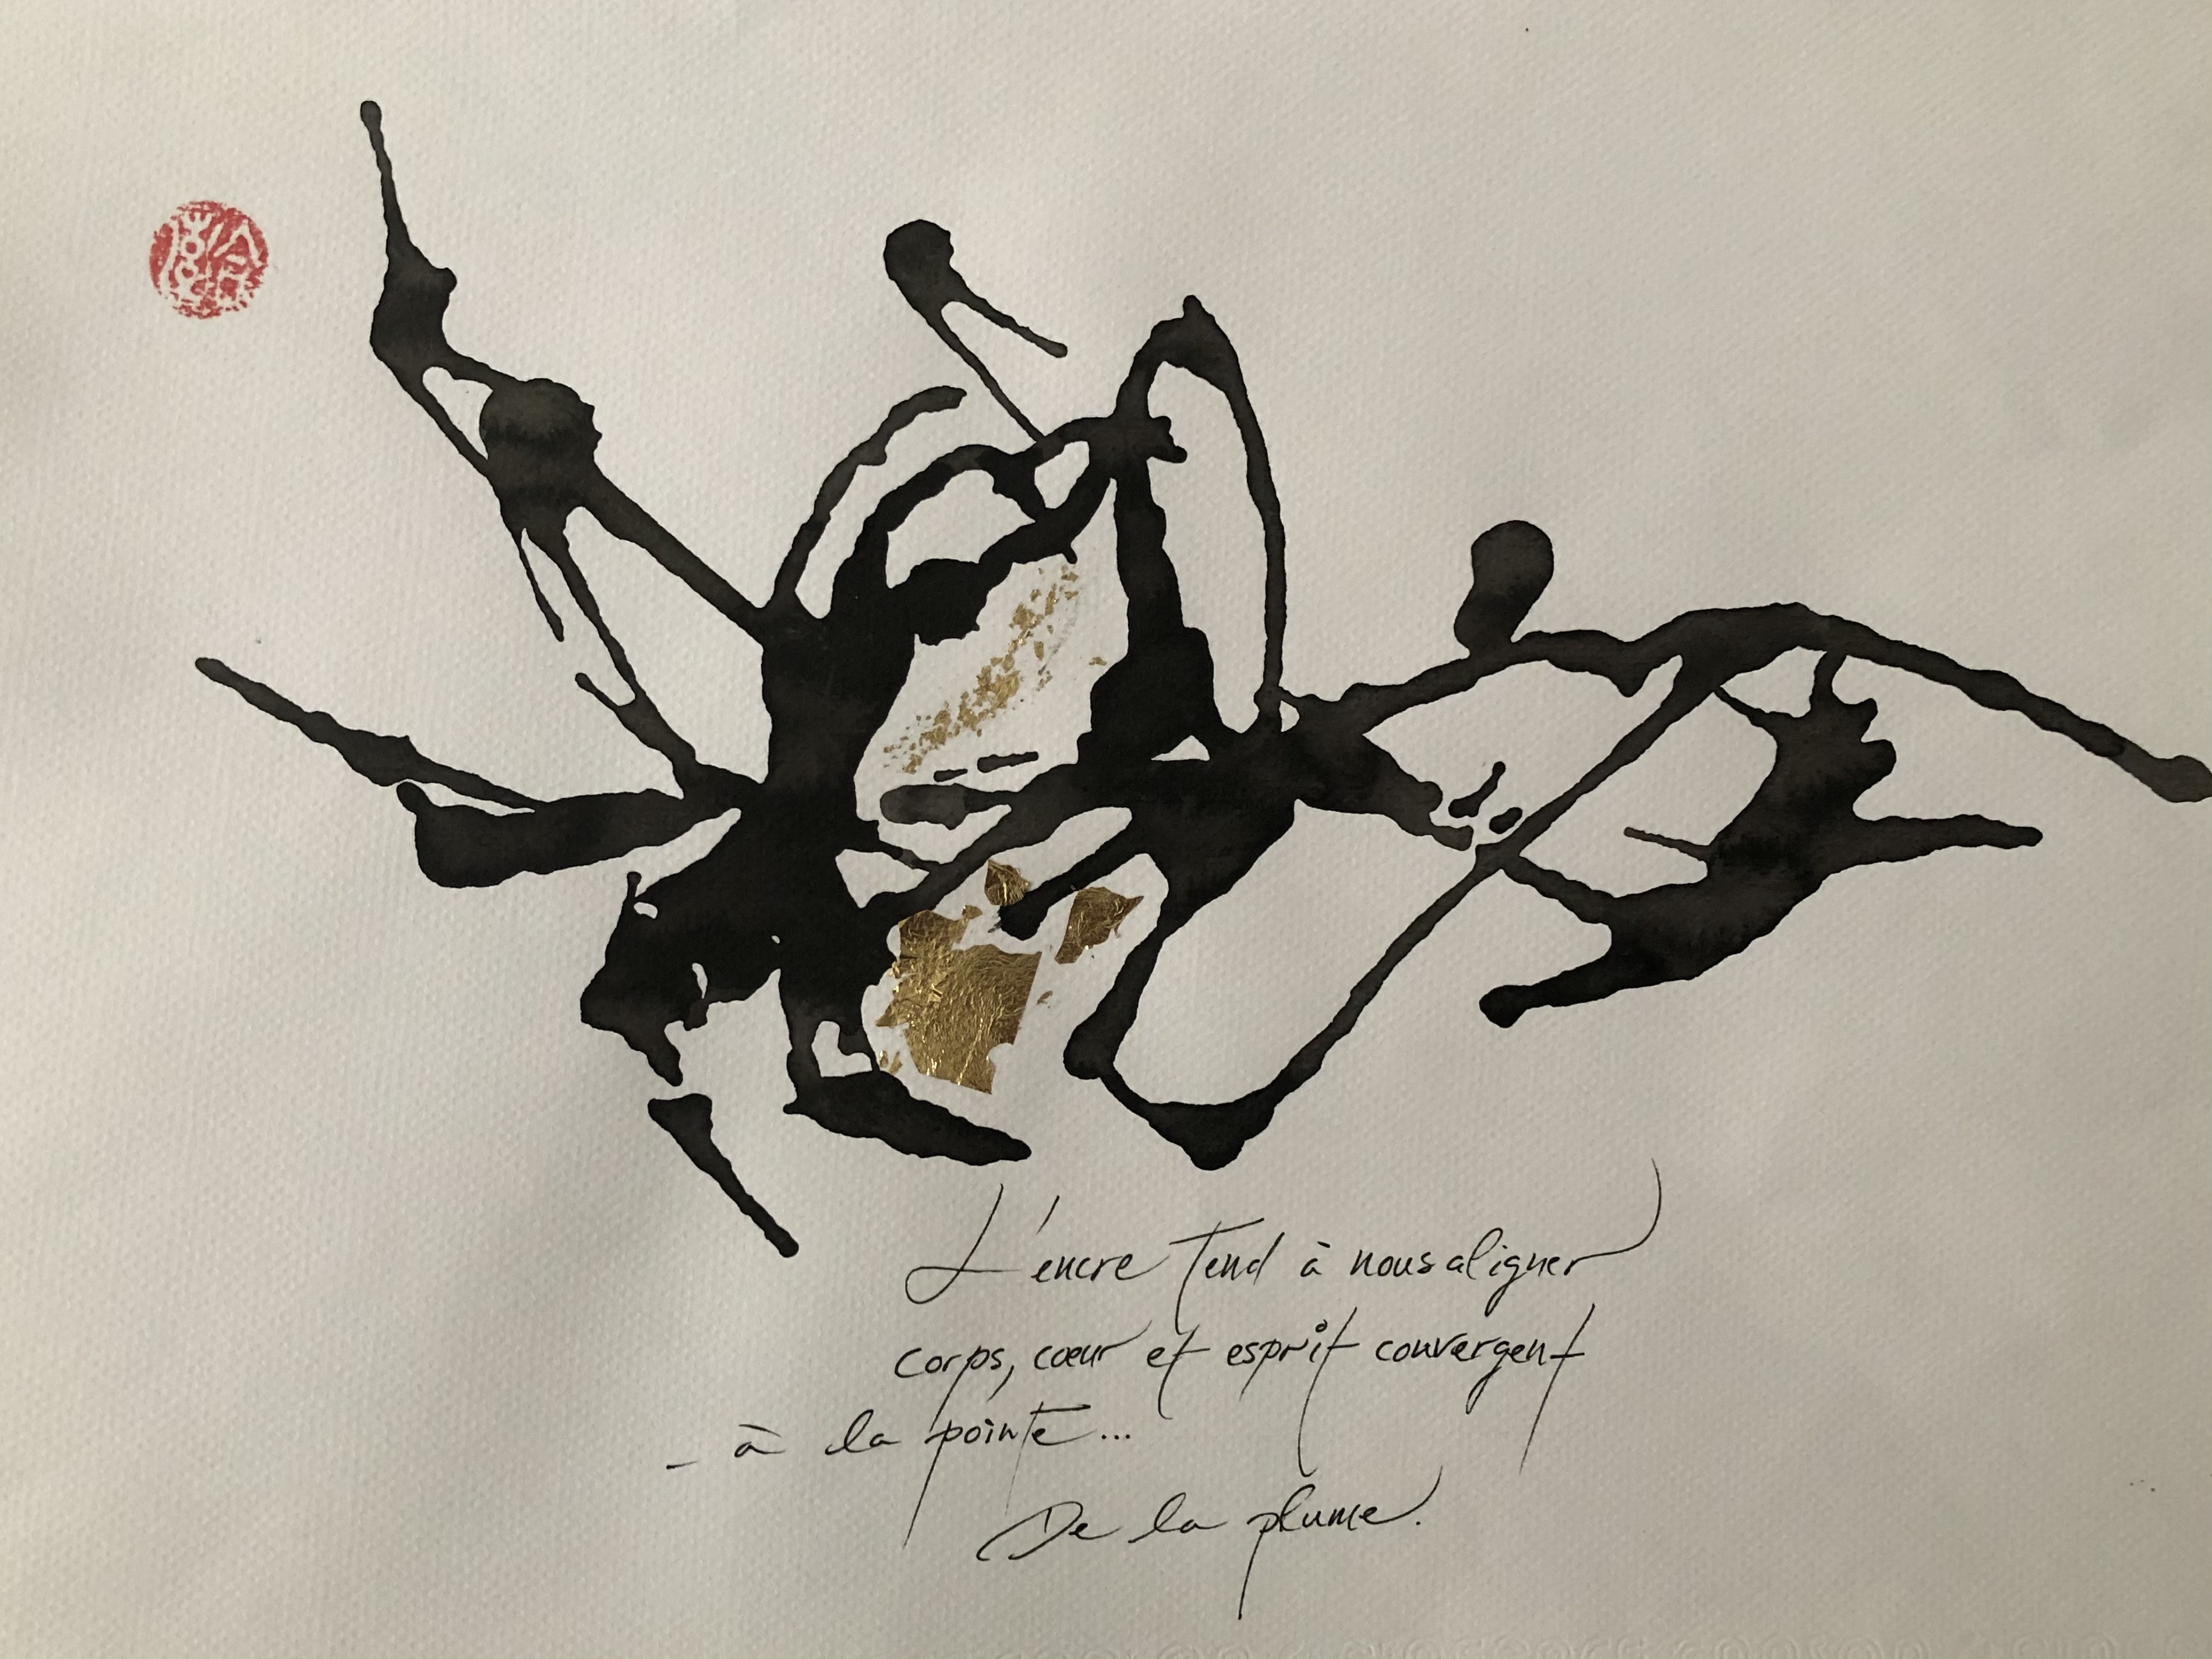 L'encre tend à nous aligner
corps, cœur et esprit convergent
_ à la pointe...
De la plume.